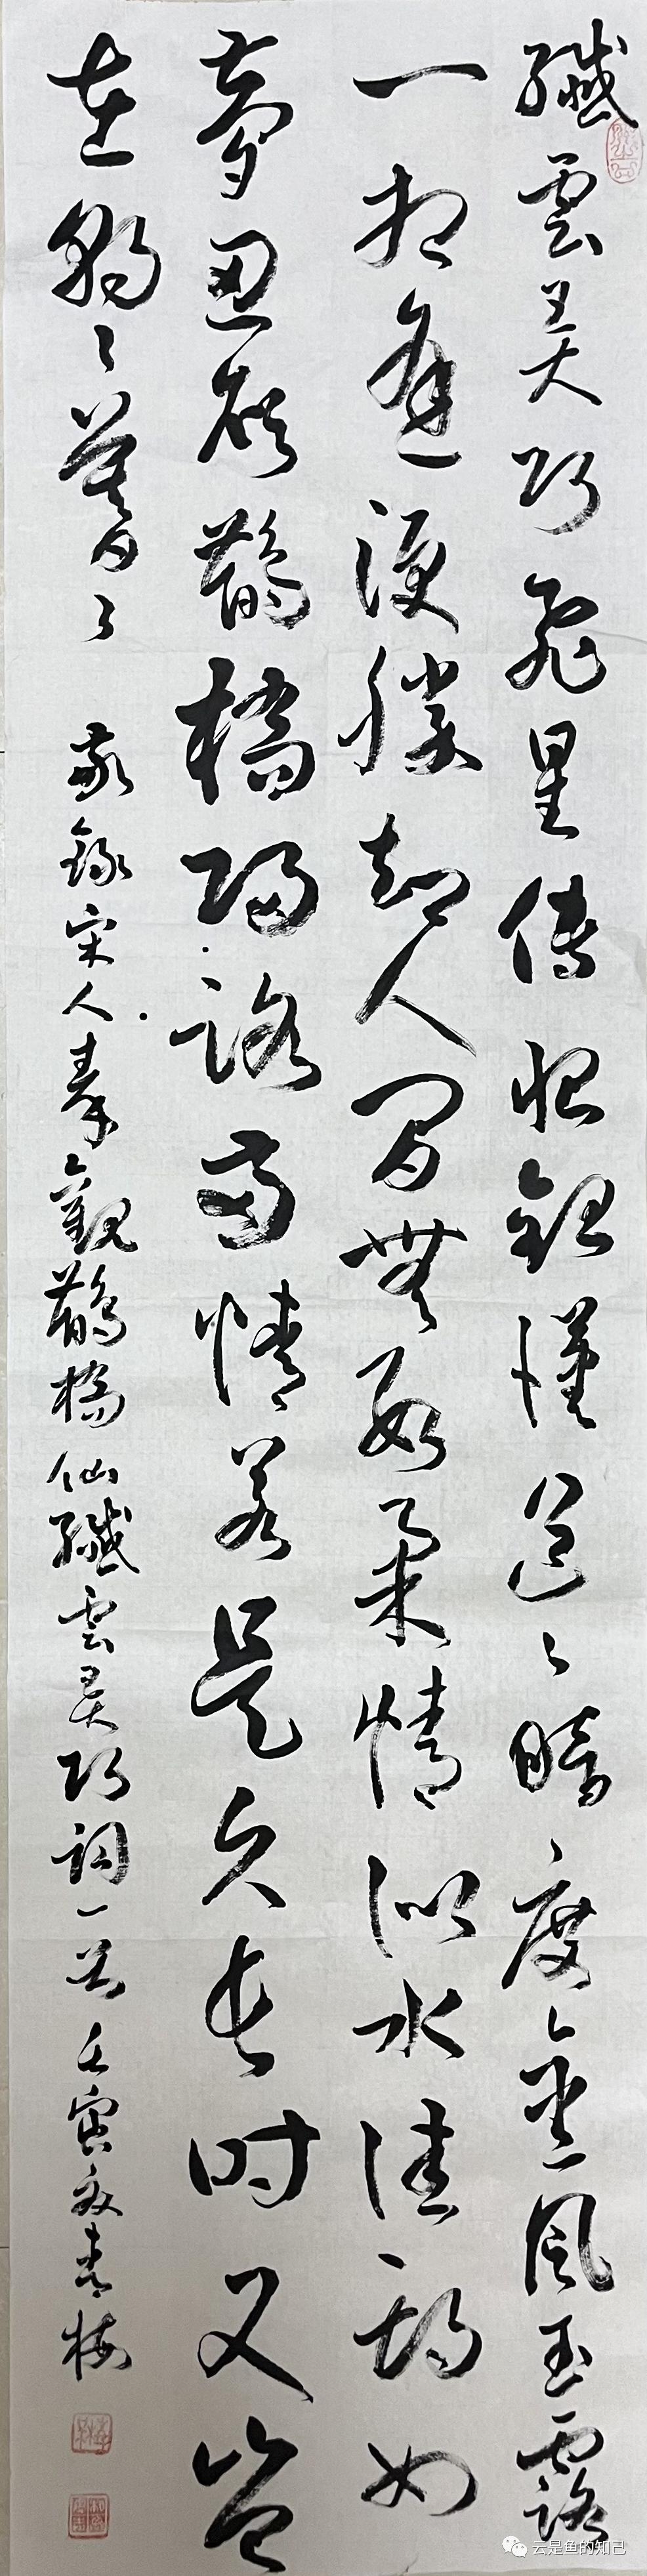 纖雲弄巧飛星傳恨銀漢迢〻暗度金風玉露
一相逢便勝却人間無數柔情似水佳期如
夢忍顧鵲橋歸路兩情若是久長時又豈
在朝〻暮〻 敬錄宋人秦觀鵲橋仙纖雲弄巧詞一首 壬寅夏青梅
云是鱼的知己